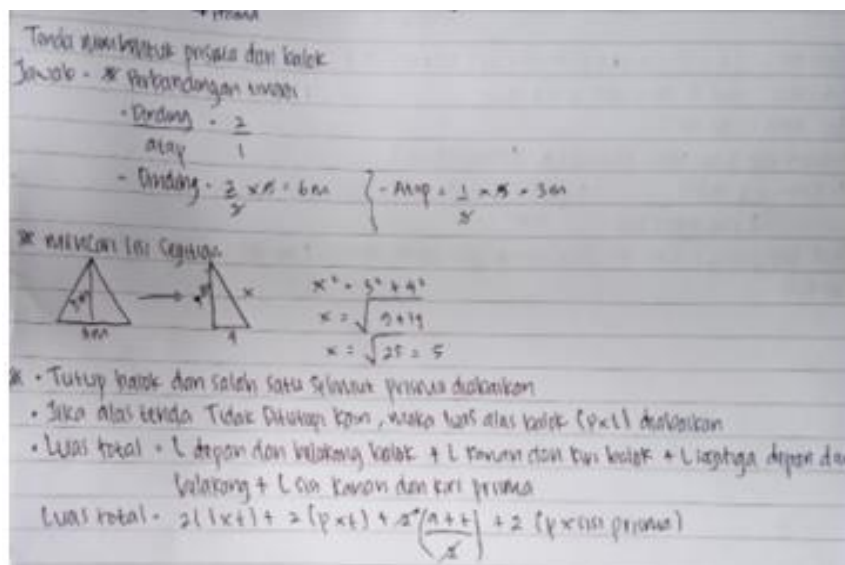 Tenda membentuk prisma dan balok
Jawab - * Perbandingan tinggi
- Dinding = 2
atap 1
- Dinding = 2/3 × 9 = 6m - Atap = 1/3 × 9 = 3m
* Mencari sisi segitiga
3m x
8m 4
x² = 3² + 4²
x = √9+16
x = √25 = 5
* • Tutup balok dan salah satu selimut prisma diabaikan
• Jika alas tenda Tidak Ditutupi kain, maka luas alas balok (p×l) diabaikan
• Luas total = L depan dan belakang balok + L kanan dan kiri balok + L segitiga depan da
belakang + L sisi kanan dan kiri prisma
Luas total = 2(l×t) + 2(p×t) + 2(a×t/2) + 2(p×sisi prisma)